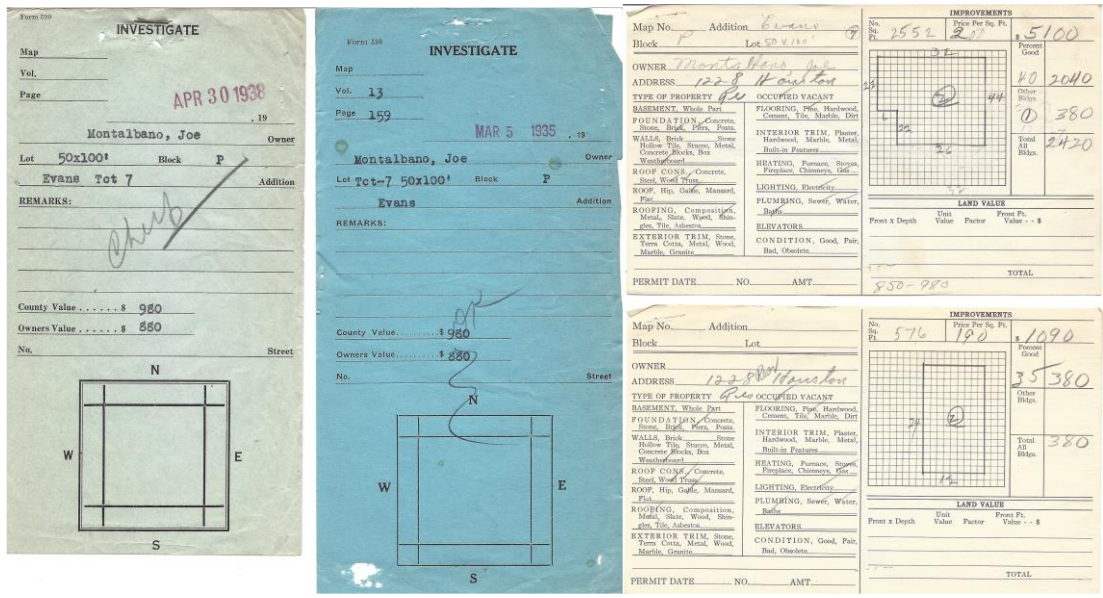 Form 590
INVESTIGATE
Map
Vol.
Page
APR 30 1938
, 19
Montalbano, Joe Owner
Lot 50x100' Block P
Evans Tct 7 Addition
REMARKS:
County Value ...... $ 980
Owners Value ...... $ 880
No. Street
N
W E
S
Form 590
INVESTIGATE
Map
Vol. 13
Page 159
MAR 5 1935 , 19
Montalbano, Joe Owner
Lot Tct-7 50x100' Block P
Evans Addition
REMARKS:
OK
County Value.......... $ 980
Owners Value.......... $ 880
No. Street
N
W E
S
Map No. Addition Evans 7
Block P Lot 50x100'
OWNER Montalbano, Joe
ADDRESS 1228 Houston
TYPE OF PROPERTY Res OCCUPIED VACANT
BASEMENT, Whole Part
FOUNDATION, Concrete,
Stone, Brick, Piers, Posts.
WALLS, Brick Stone
Hollow Tile, Stucco, Metal,
Concrete Blocks, Box
Weatherboard
ROOF CONS., Concrete,
Steel, Wood Truss
ROOF, Hip, Gable, Mansard,
Flat
ROOFING, Composition,
Metal, Slate, Wood, Shin-
gles, Tile, Asbestos
EXTERIOR TRIM, Stone,
Terra Cotta, Metal, Wood,
Marble, Granite
FLOORING, Pine, Hardwood,
Cement, Tile, Marble, Dirt
INTERIOR TRIM, Plaster,
Hardwood, Marble, Metal,
Built-in Features
HEATING, Furnace, Stoves,
Fireplace, Chimneys, Gas
LIGHTING, Electricity
PLUMBING, Sewer, Water,
Baths
ELEVATORS
CONDITION, Good, Fair,
Bad, Obsolete
PERMIT DATE NO. AMT.
IMPROVEMENTS
No. Sq. Ft. 2552 Price Per Sq. Ft. 200 $ 5100
Percent Good
40 2040
Other Bldgs.
1 380
Total All Bldgs. 2420
32
44
6
22
26
LAND VALUE
Front x Depth Unit Value Factor Front Ft. Value - - $
TOTAL
850-980
Map No. Addition
Block Lot
OWNER
ADDRESS 1228 Houston
TYPE OF PROPERTY Res OCCUPIED VACANT
BASEMENT, Whole Part
FOUNDATION, Concrete,
Stone, Brick, Piers, Posts.
WALLS, Brick Stone
Hollow Tile, Stucco, Metal,
Concrete Blocks, Box
Weatherboard
ROOF CONS., Concrete,
Steel, Wood Truss
ROOF, Hip, Gable, Mansard,
Flat
ROOFING, Composition,
Metal, Slate, Wood, Shin-
gles, Tile, Asbestos
EXTERIOR TRIM, Stone,
Terra Cotta, Metal, Wood,
Marble, Granite
FLOORING, Pine, Hardwood,
Cement, Tile, Marble, Dirt
INTERIOR TRIM, Plaster,
Hardwood, Marble, Metal,
Built-in Features
HEATING, Furnace, Stoves,
Fireplace, Chimneys, Gas
LIGHTING, Electricity
PLUMBING, Sewer, Water,
Baths
ELEVATORS
CONDITION, Good, Fair,
Bad, Obsolete
PERMIT DATE NO. AMT.
IMPROVEMENTS
No. Sq. Ft. 576 Price Per Sq. Ft. 190 $ 1090
Percent Good
35 380
Other Bldgs.
Total All Bldgs. 380
24
2
LAND VALUE
Front x Depth Unit Value Factor Front Ft. Value - - $
TOTAL